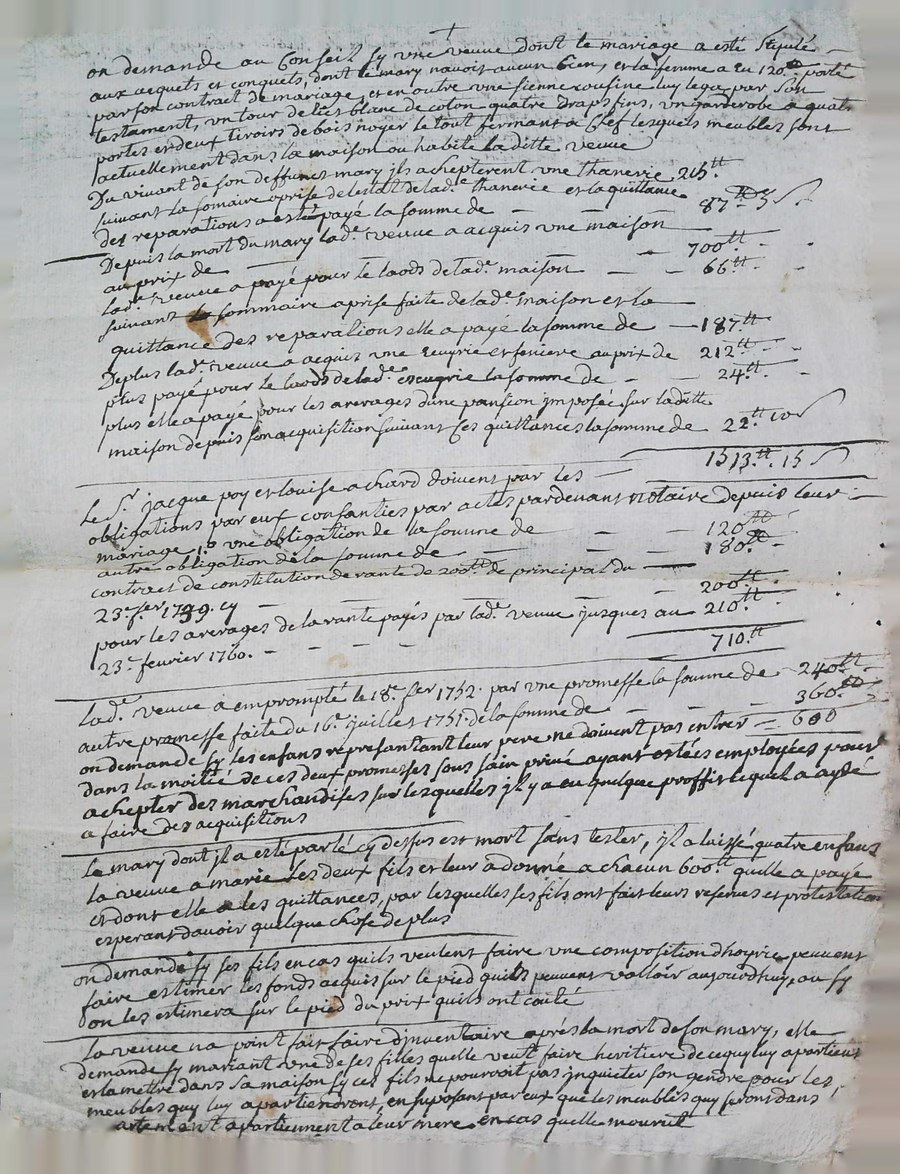 on demande au Conseil sy une veuve dont le mariage a esté stipulé
aux acquets et conquets, dont le mary navoit aucun bien, et la femme a eu 120.tt porté
par son contract de mariage, et en outre une sienne cousine luy lega par son
testament, un tour de lict blanc de coton quatre draps fins, un garderobe a quatre
portes et deux tiroirs de bois noyer le tout fermant a clef lesquels meubles sont
actuellement dans la maison ou habite laditte veuve
Du vivant de son deffunct mary ils achepterent une thanerie 215.tt
suivant la somaire aprise de lestat de lad.e thanerie et la quittance
des reparations a esté payé la somme de — — — 87.tt 5 s
Depuis la mort du mary lad.e veuve a acquis une maison
au prix de — — — 700.tt
lad.e veuve a payé pour le laods de lad.e maison — — 66.tt
suivant la sommaire aprise faite de lad.e maison et la
quittance des reparations elle a payé la somme de — 187.tt
De plus lad.e veuve a acquis une ecuyrie et feniere au prix de 212.tt
plus payé pour le laods de lad.e escurie la somme de — — 24.tt
plus elle a payé pour les arerages dune pansion jmposée sur laditte
maison depuis son acquisition suivant ses quittances la somme de 22.tt 10 s
1513.tt. 15 s
Le S.r jacque poy et louise achard doivent par les
obligations par eux consanties par actes pardevant notaire depuis leur
mariage 1.o une obligation de la somme de — — 120.tt
autre obligation de la somme de — — — 180.tt
contract de constitution de rante de 200.tt de principal du
23.e fer 1739. cy — — — 200.tt
pour les arerages de la rante payés par lad.e veuve jusques au 210.tt
23.e fevrier 1760. — — — — — 710.tt
lad.e veuve a emprompté le 18.e fer 1752. par une promesse la somme de — 240.tt
autre promesse faite du 16.e juillet 1751. de la somme de — — — 360.tt
on demande sy les enfans represantant leur pere ne doivent pas entrer — 600
dans la moitié de ces deux promesses sous sain privé ayant estées employées pour
achepter des marchandises sur lesquelles jl y a eu quelque proffit lequel a aydé
a faire des acquisitions
Le mary dont jl a esté parlé cy dessus est mort sans tester, jl a laissé quatre enfans
la veuve a marié ses deux fils et leur a donné a chacun 600.tt quelle a payé
et dont elle a les quittances, par lesquelles ses fils ont fait leurs reserves et protestations
esperant davoir quelque chose de plus
on demande sy ses fils en cas quils veulent faire une composition dhoyrie peuvent
faire estimer les fonds acquis sur le pied quils peuvent valloir aujourdhuy, ou sy
on les estimera sur le pied du prix quils ont couté
La veuve na point fait faire djnventaire après la mort de son mary, elle
demande sy mariant une de ses filles quelle veut faire heritiere de ce quy luy apartient
et la mettre dans sa maison sy ces fils ne pourroit pas jnquieter son gendre pour les
meubles quy luy apartiendront, en suposant par eux que les meubles quy seront dans
apartiennent a leur mere en cas quelle mourut